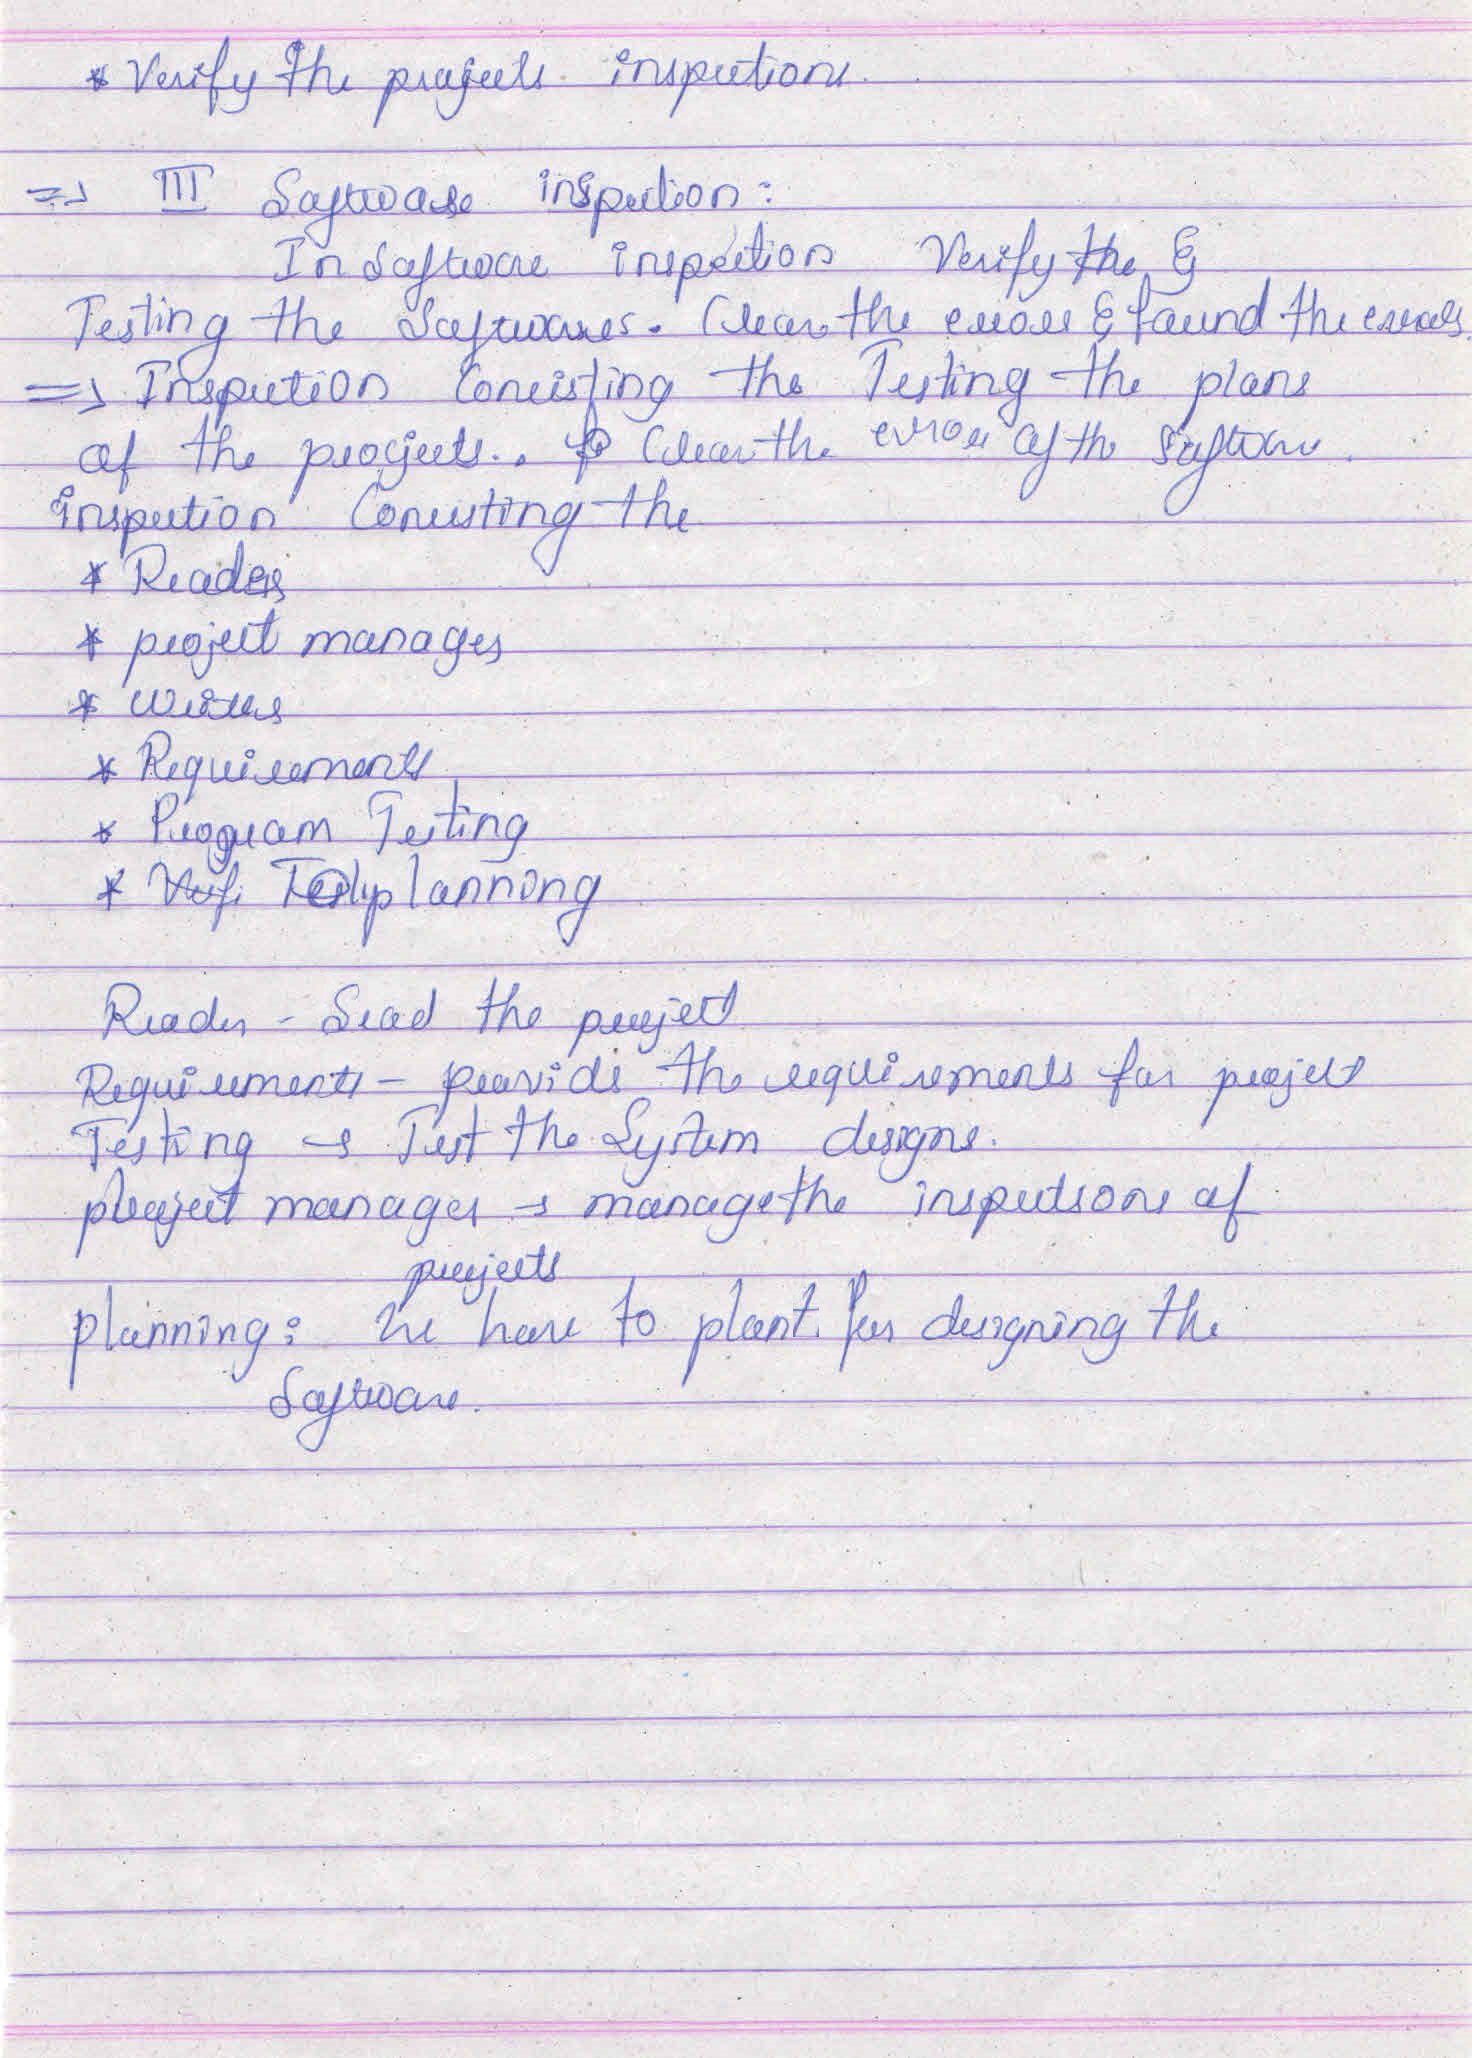 * Verify the projects inspections.
=> III Software inspection:
In Software inspection Verify the &
Testing the Softwares. Clear the errors & found the errors.
=> Inspection Consisting the Testing the plans
of the projects.. Clear the error of the Software.
inspection Consisting the
* Readers
* project manages
* Writers
* Requirements
* Program Testing
* planning
Reader - Read the project
Requirements - provide the requirements for project
Testing → Test the System designs.
project manager → manage the inspections of
projects
planning: We have to plant for designing the
Software.